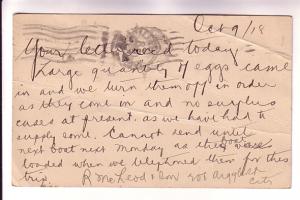 Oct 9/18
Your letter rec'd today -
Large quantity of eggs came
in and we turn them off in order
as they come in and no surplus
cases at present. as we have had to
supply some. Cannot send until
next boat next Monday as the boat was
loaded when we telephoned them for this
trip
R McLeod & Son 208 Argyle St
City